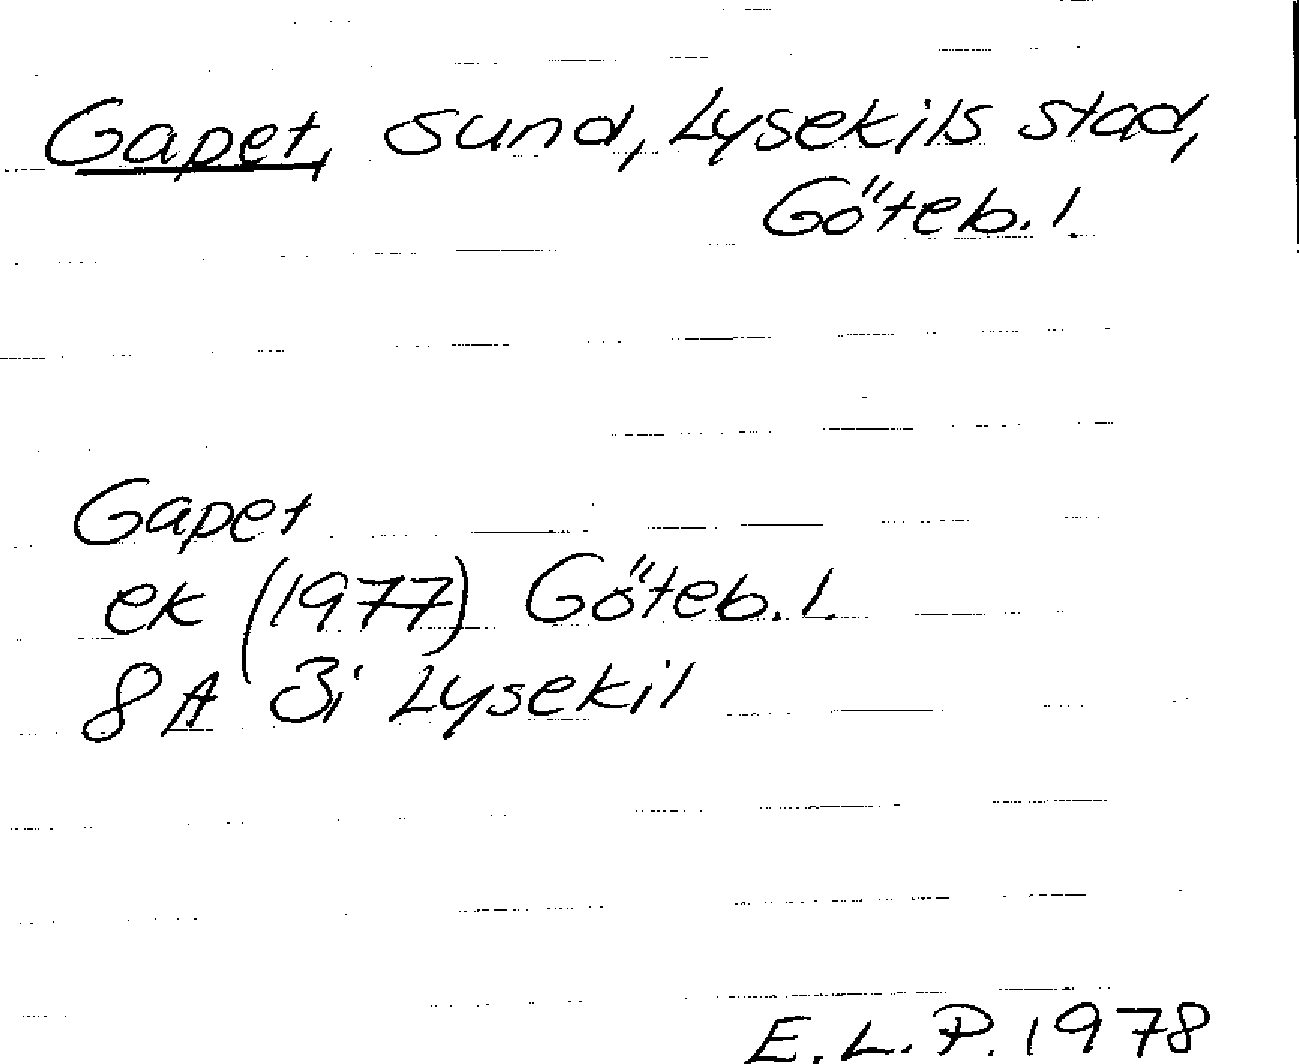 Gapet, sund, Lysekils stad,
Göteb. l.
Gapet
ek (1977) Göteb. l.
8A 3i Lysekil
E. L. P. 1978